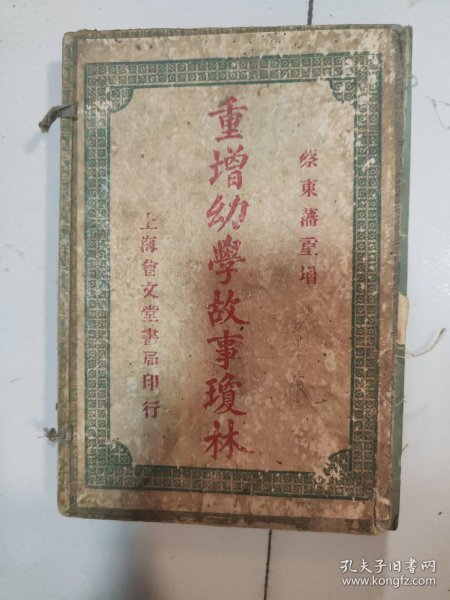 蔡東藩重增
重增幼學故事瓊林
上海會文堂書局印行
孔夫子旧书网
www.kongfz.com